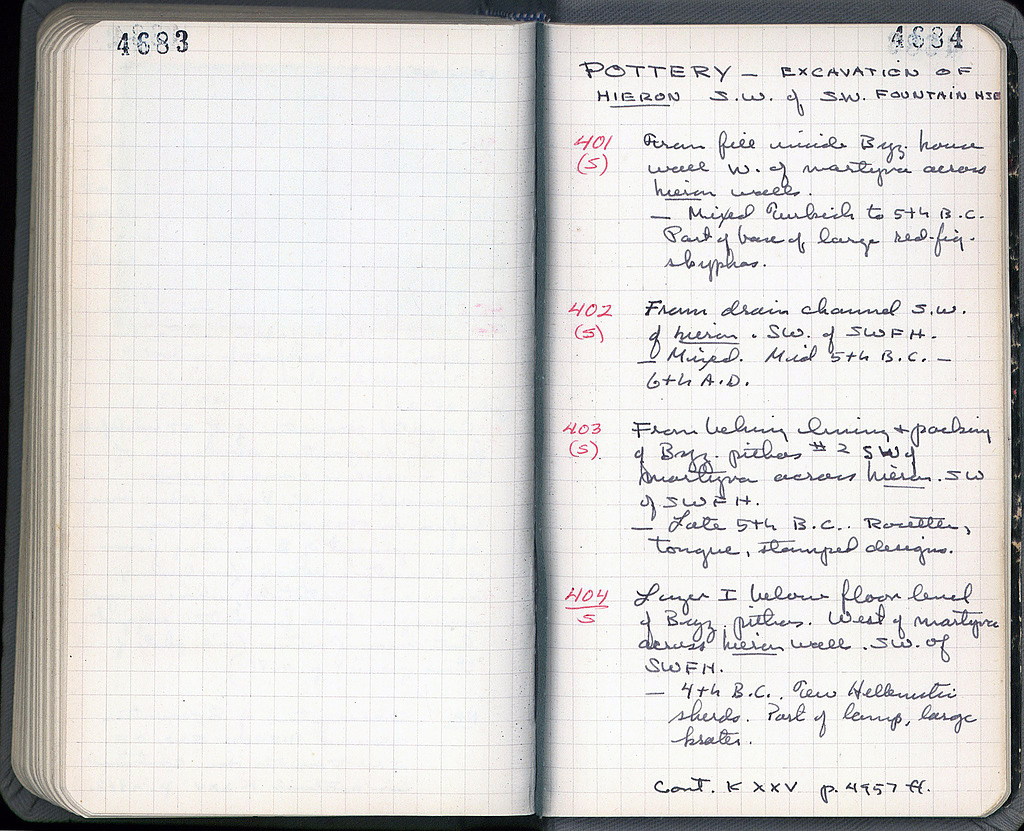 4683
4684
POTTERY — EXCAVATION OF
HIERON S.W. of S.W. FOUNTAIN HSE
401
(S)
From fill inside Byz. house
wall W. of martyra across
hieron walls.
— Mixed Turkish to 5th B.C.
Part of base of large red-fig.
skyphos.
402
(S)
From drain channel S.W.
of hieron. SW. of SWFH.
— Mixed. Mid 5th B.C. —
6th A.D.
403
(S)
From behing lining + packing
of Byz. pithos #2 SW of
martyra across hieron. SW
of SWFH.
— Late 5th B.C.. Rosettes,
tongue, stamped designs.
404
S
Layer I below floor level
of Byz. pithos. West of martyra
across hieron wall. SW. of
SWFH.
— 4th B.C.. Few Hellenistic
sherds. Part of lamp, large
krater.
Cont. K XXV p. 4957 ff.